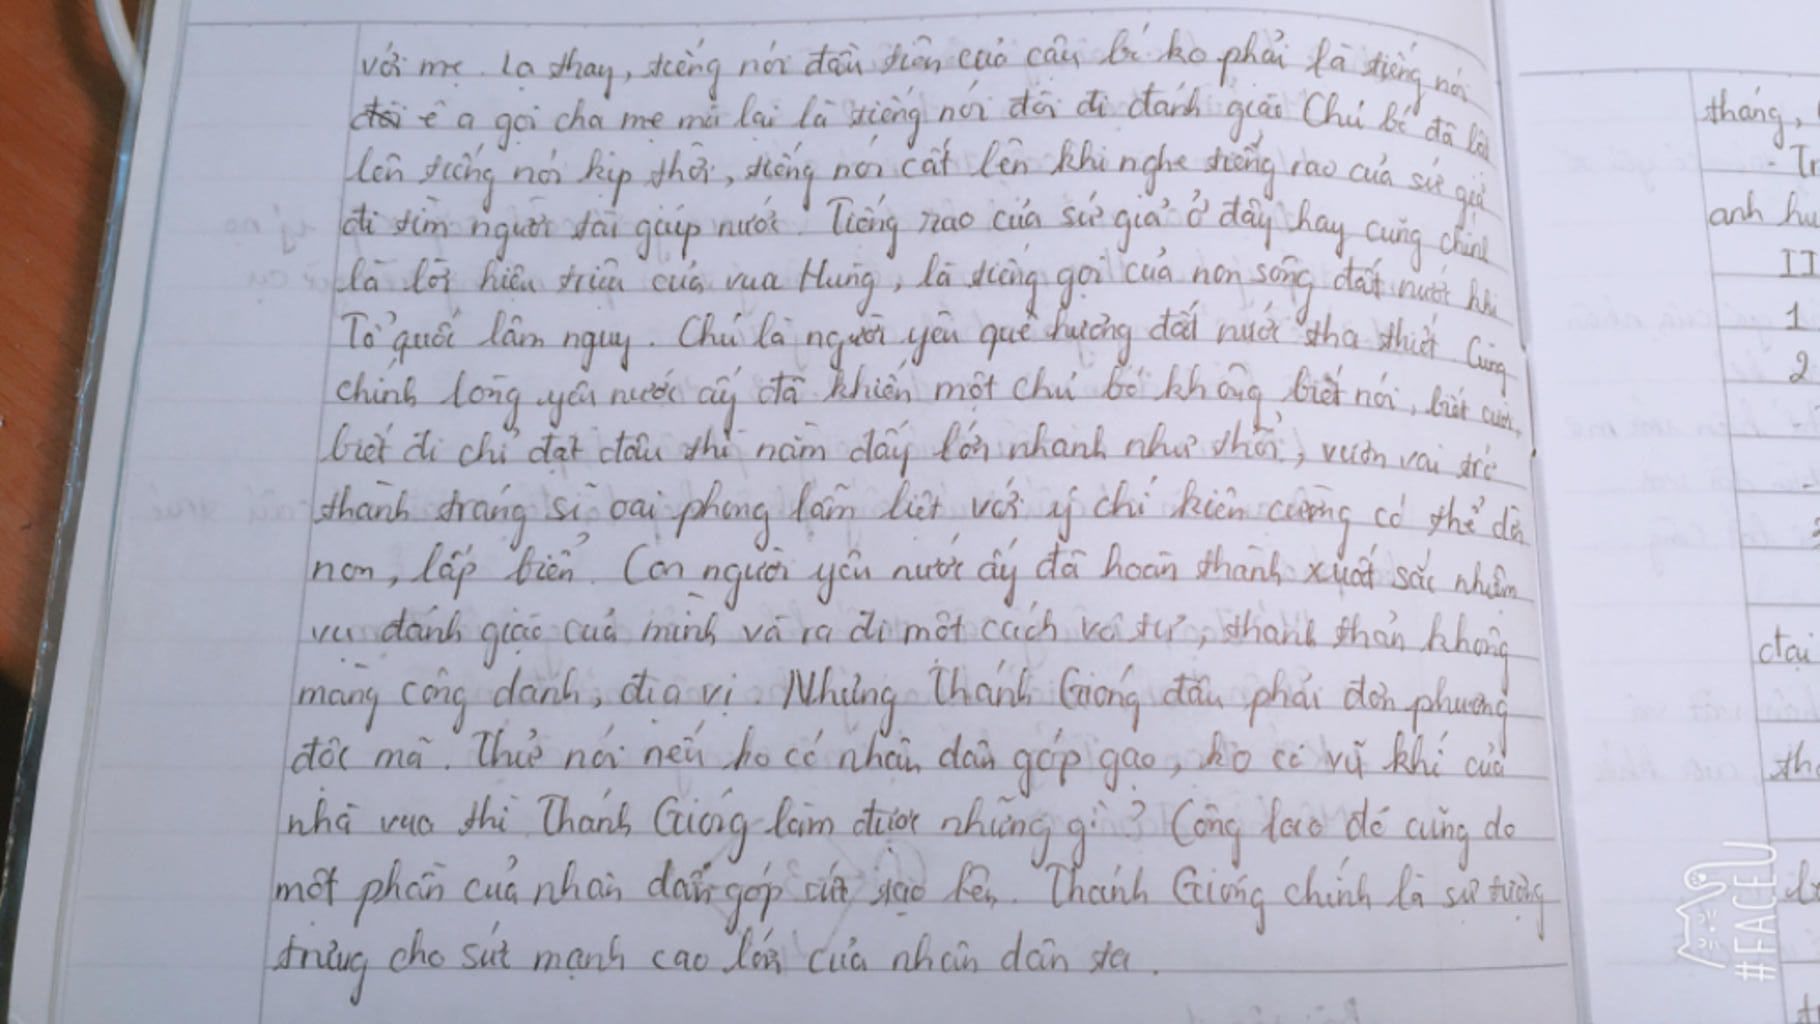 với mẹ. Lạ thay, tiếng nói đầu tiên của cậu bé ko phải là tiếng nói
ê a gọi cha mẹ mà lại là tiếng nói đòi đi đánh giặc Chú bé đã
lên tiếng nói kịp thời, tiếng nói cất lên khi nghe tiếng rao của sứ giả
đi tìm người tài giúp nước. Tiếng rao của sứ giả ở đây hay cũng chính
là lời hiệu triệu của vua Hùng, là tiếng gọi của non sông đất nước khi
Tổ quốc lâm nguy. Chú là người yêu quê hương đất nước tha thiết Cũng
chính lòng yêu nước ấy đã khiến một chú bé không biết nói, biết cười,
biết đi chỉ đặt đâu thì nằm đấy lớn nhanh như thổi, vươn vai trở
thành tráng sĩ oai phong lẫm liệt với ý chí kiên cường có thể dời
non, lấp biển. Con người yêu nước ấy đã hoàn thành xuất sắc nhiệm
vụ đánh giặc của mình và ra đi một cách vô tư, thanh thản không
màng công danh, địa vị. Nhưng Thánh Gióng đâu phải đơn phương
độc mã. Thử nói nếu ko có nhân dân góp gạo, ko có vũ khí của
nhà vua thì Thánh Gióng làm được những gì? Công lao đó cũng do
một phần của nhân dân góp sức tạo lên. Thánh Gióng chính là sự tượng
trưng cho sức mạnh cao lớn của nhân dân ta.
tháng,
Tr
anh hù
II
1
2
đại
#FACEU